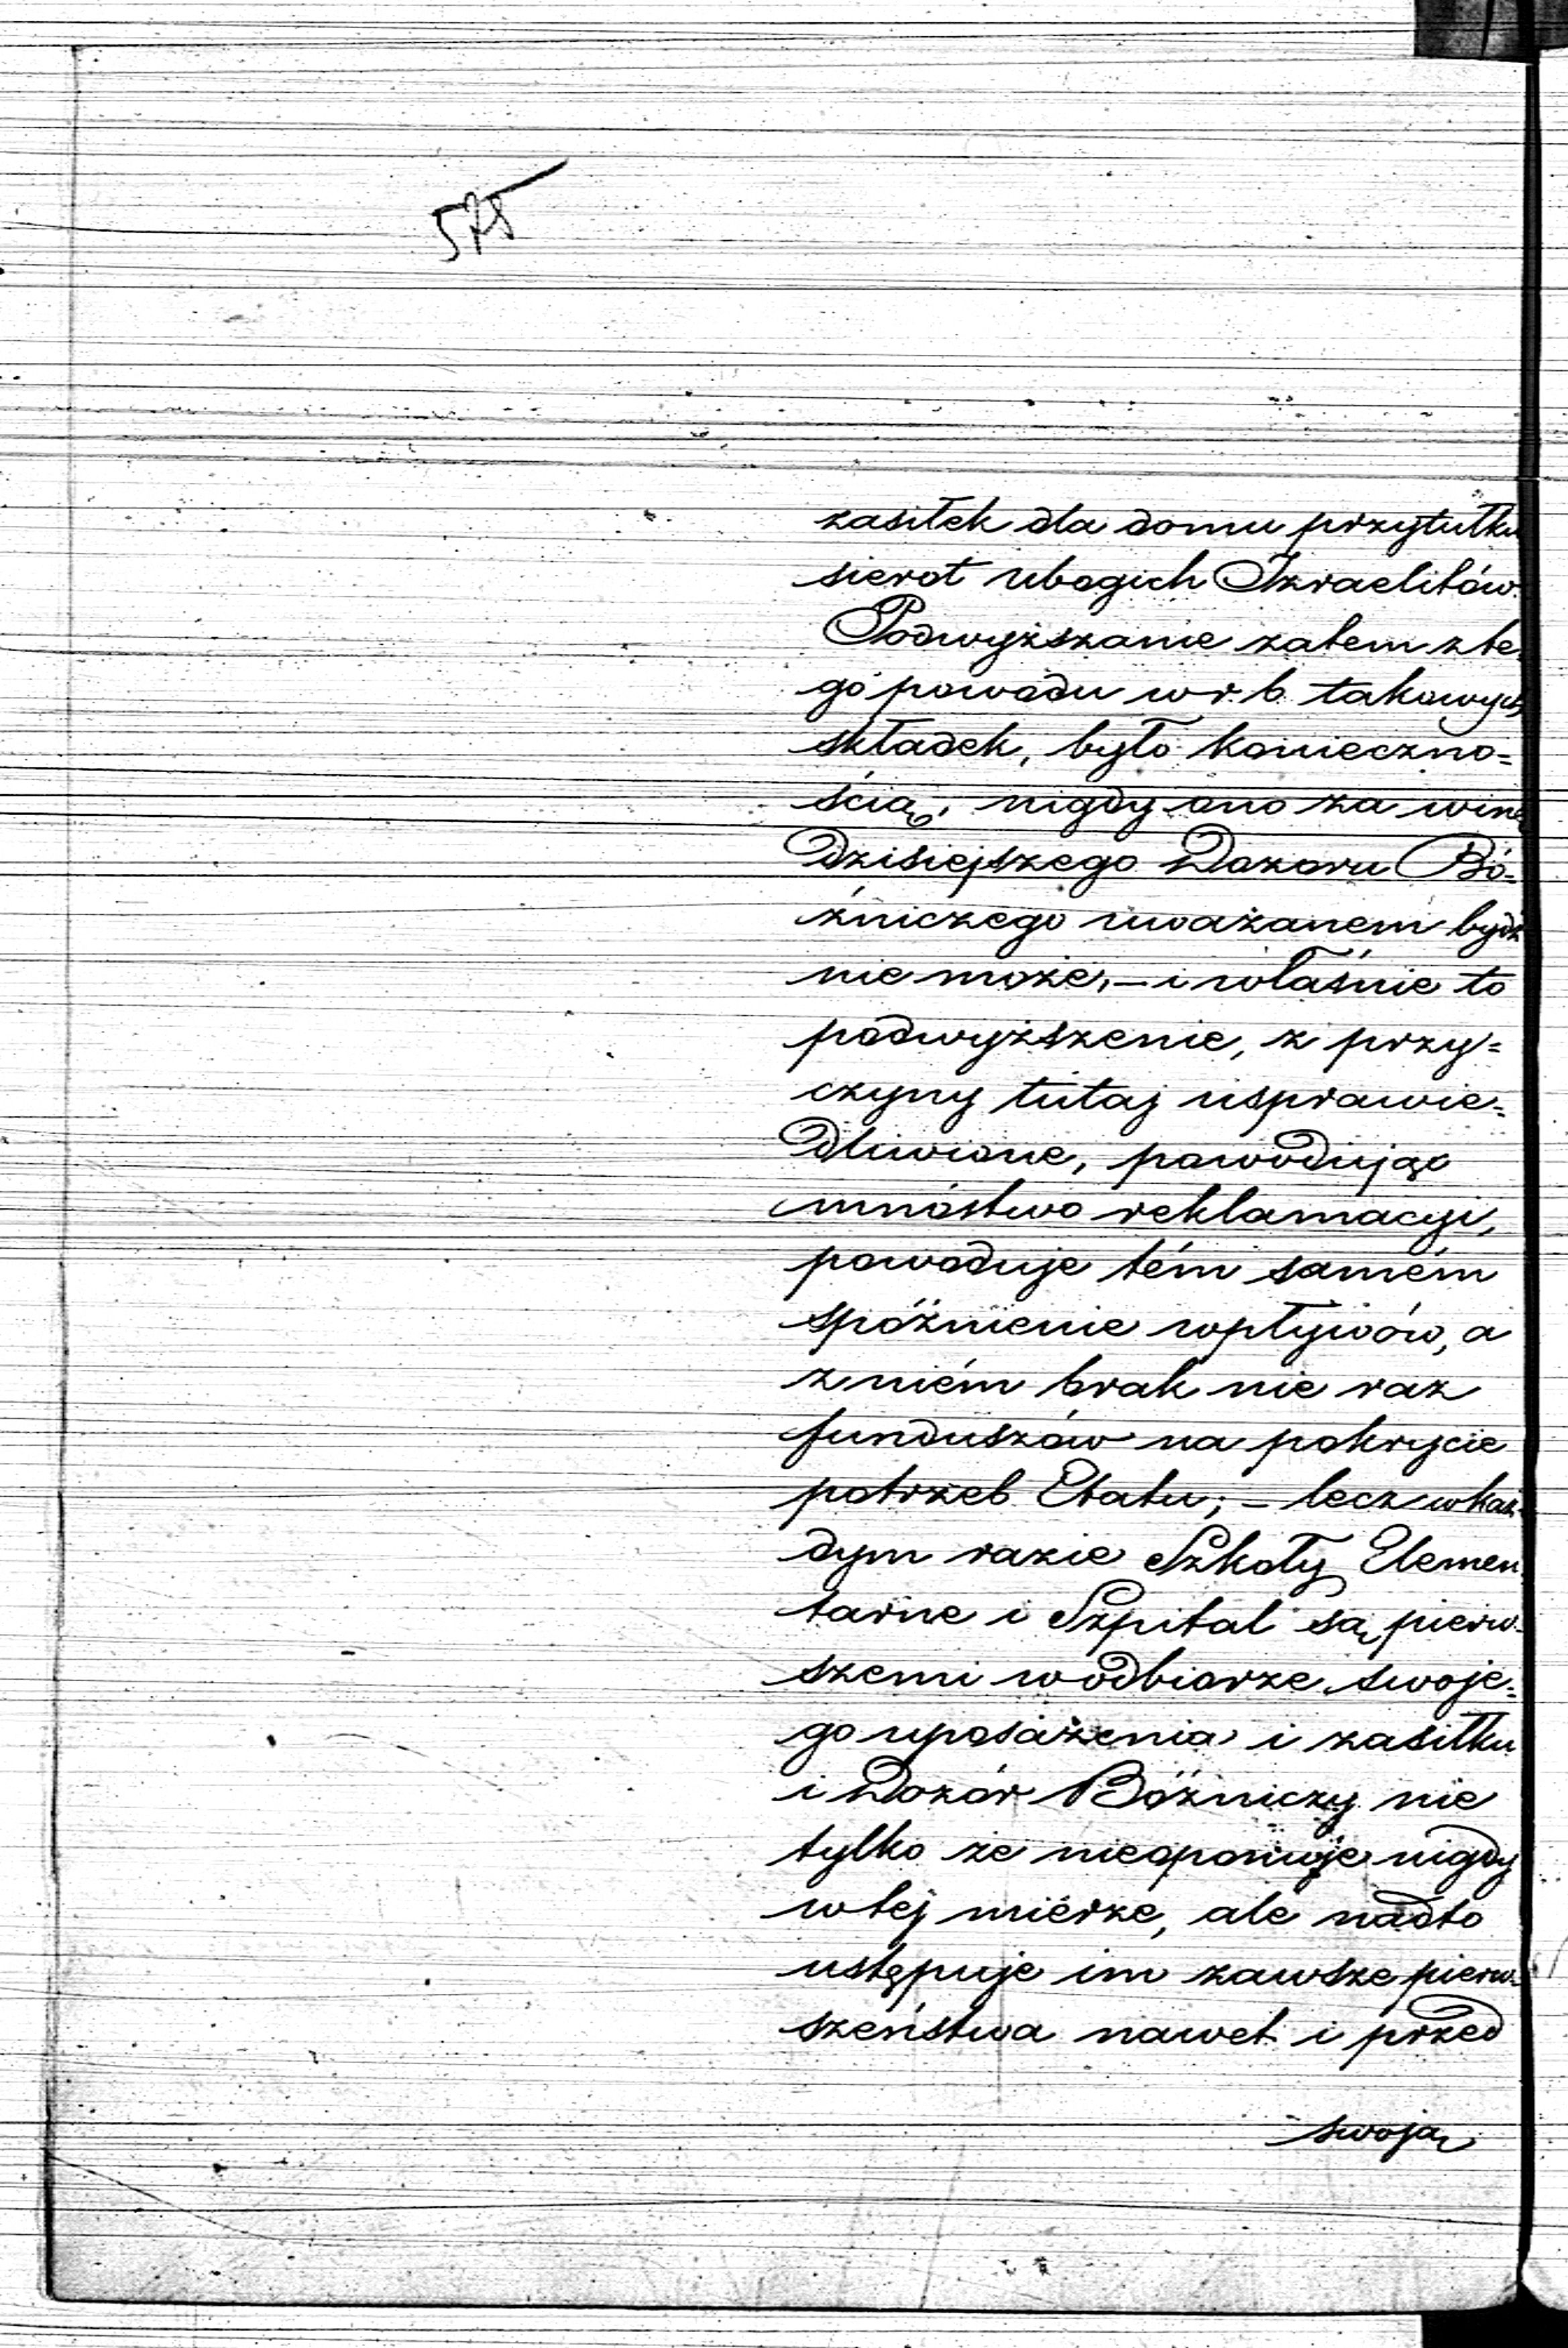 575
zasiłek dla domu przytułku
sierot ubogich Izraelitów.
Podwyższanie zatem z te-
go powodu w r. b. takowych
składek, było konieczno=
ścią, nigdy ono za winę
Dzisiejszego Dozoru Bó=
źniczego uważanem bydź
nie może, – i właśnie to
podwyższenie, z przy=
czyny tutaj usprawie=
dliwione, powodując
mnóstwo reklamacyi,
powoduje tém samém
spóźnienie wpływów, a
z niém brak nie raz
funduszów na pokrycie
potrzeb Etatu; – lecz w każ-
dym razie Szkoły Elemen
tarne i Szpital są pierw-
szemi w odbiorze swoje=
go uposażenia i zasiłku
i Dozór Bóźniczy nie
tylko że nieoponuje nigdy
w tej mierze, ale nadto
ustępuje im zawsze pierw-
szeństwa nawet i przed
swoją